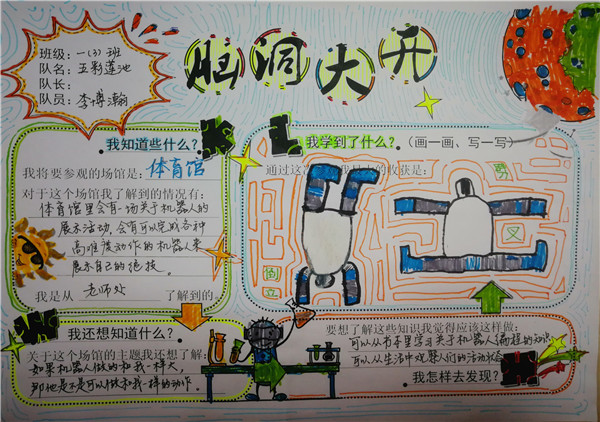 脑洞大开
班级：一（3）班
队名：五彩莲池
队长：
队员：李博瀚
我知道些什么？
我将要参观的场馆是：体育馆
对于这个场馆我了解到的情况有：
体育馆里会有一场关于机器人的
展示活动，会有可以完成各种
高难度动作的机器人来
展示自己的绝技。
我是从 老师处 了解到的。
我学到了什么？（画一画、写一写）
通过这 的收获是：
倒立
劈
叉
我还想知道什么？
关于这个场馆的主题我还想了解：
如果机器人做的和我一样大，
那他是不是可以做和我一样的动作。
要想了解这些知识我觉得应该这样做：
可以从书本里学习关于机器人编程的知识
可以从生活中观察人们的活动状态
我怎样去发现？